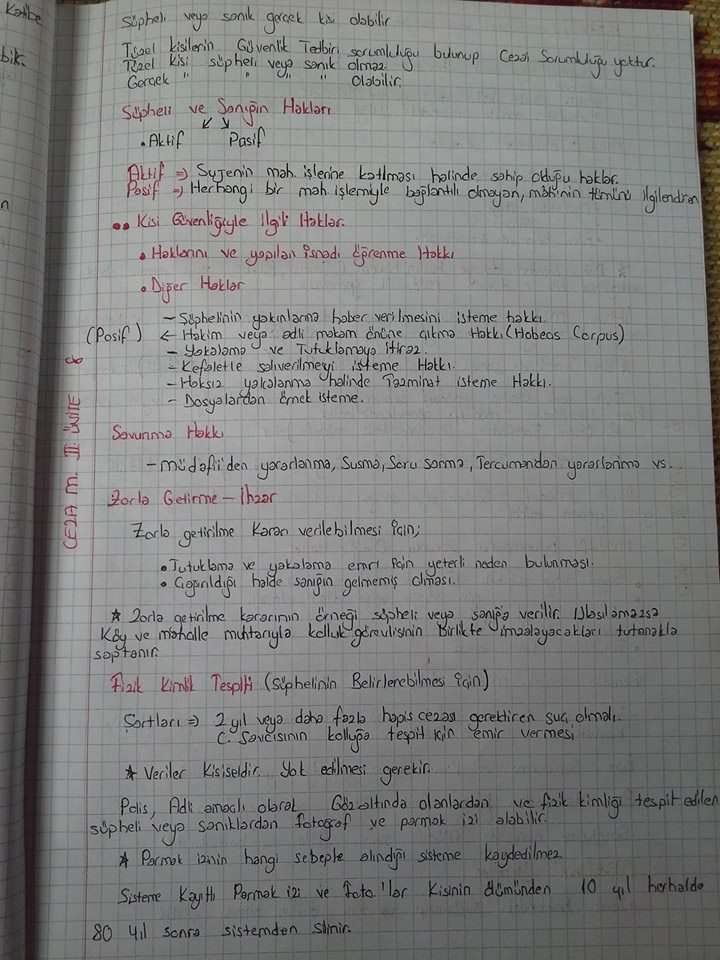 Katibe
bik.
n
Süpheli veya sanık gerçek kişi olabilir
Tüzel kişilerin Güvenlik Tedbiri sorumluluğu bulunup Cezai Sorumluluğu yoktur.
Tüzel kişi süpheli veya sanık olmaz
Gerçek " " " " Olabilir.
Süpheli ve Sanığın Hakları
• Aktif Pasif
Aktif => Sujenin mah. işlerine katılması halinde sahip olduğu haklar.
Pasif => Herhangi bir mah işlemiyle bağlantılı olmayan, mah.nin tümünü ilgilendiren
•• Kişi Güvenliğiyle İlgili Haklar.
• Haklarını ve yapılan isnadı öğrenme Hakkı
• Diğer Haklar
- Şüphelinin yakınlarına haber verilmesini isteme hakkı
(Pasif) ← Hakim veya adli makam önüne çıkma Hakkı (Habeas Corpus)
- Yakalama ve Tutuklamaya İtiraz.
- Kefaletle salıverilmeyi isteme Hakkı.
- Haksız yakalanma halinde Tazminat isteme Hakkı.
- Dosyalardan örnek isteme.
CEZA M. II. ÜNİTE 8
Savunma Hakkı
- müdafii'den yararlanma, Susma, Soru sorma, Tercumandan yararlanma vs.
Zorla Getirme - İhzar
Zorla getirilme Kararı verilebilmesi için;
• Tutuklama ve yakalama emri için yeterli neden bulunması.
• Çağırıldığı halde sanığın gelmemiş olması.
★ Zorla getirilme kararının örneği süpheli veya sanığa verilir. Ulaşılamazsa
Köy ve mahalle muhtarıyla kolluk görevlisinin birlikte imzalayacakları tutanakla
saptanır.
Fizik Kimlik Tespiti (Şüphelinin Belirlenebilmesi için)
Şartları => 2 yıl veya daha fazla hapis cezası gerektiren suç olmalı.
C. Savcısının kolluğa tespit için emir vermesi
★ Veriler Kişiseldir. Yok edilmesi gerekir.
Polis, Adli amaçlı olarak Gözaltında olanlardan ve fizik kimliği tespit edilen
süpheli veya sanıklardan fotoğraf ve parmak izi alabilir.
★ Parmak izinin hangi sebeple alındığı sisteme kaydedilmez
Sisteme Kayıtlı Parmak izi ve Foto'lar Kişinin ölümünden 10 yıl herhalde
80 yıl sonra sistemden silinir.